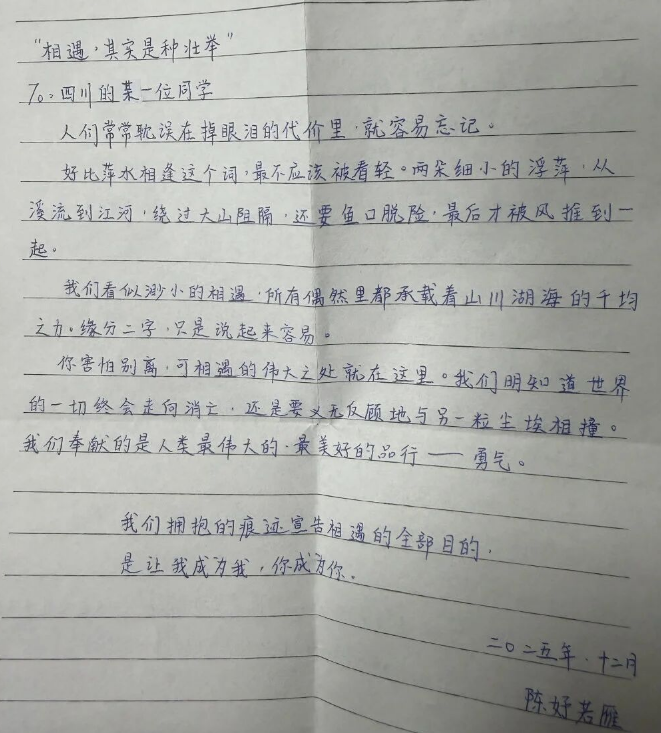 “相遇,其实是种壮举”
To。四川的某一位同学
人们常常耽误在掉眼泪的代价里,就容易忘记。
好比萍水相逢这个词,最不应该被看轻。两朵细小的浮萍,从
溪流到江河,绕过大山阻隔,还要鱼口脱险,最后才被风推到一
起。
我们看似渺小的相遇,所有偶然里都承载着山川湖海的千均
之力。缘分二字,只是说起来容易。
你害怕别离,可相遇的伟大之处就在这里。我们明知道世界
的一切终会走向消亡,还是要义无反顾地与另一粒尘埃相撞。
我们奉献的是人类最伟大的,最美好的品行——勇气。
我们拥抱的痕迹宣告相遇的全部目的,
是让我成为我,你成为你。
二〇二五年.十二月
陈好若雁